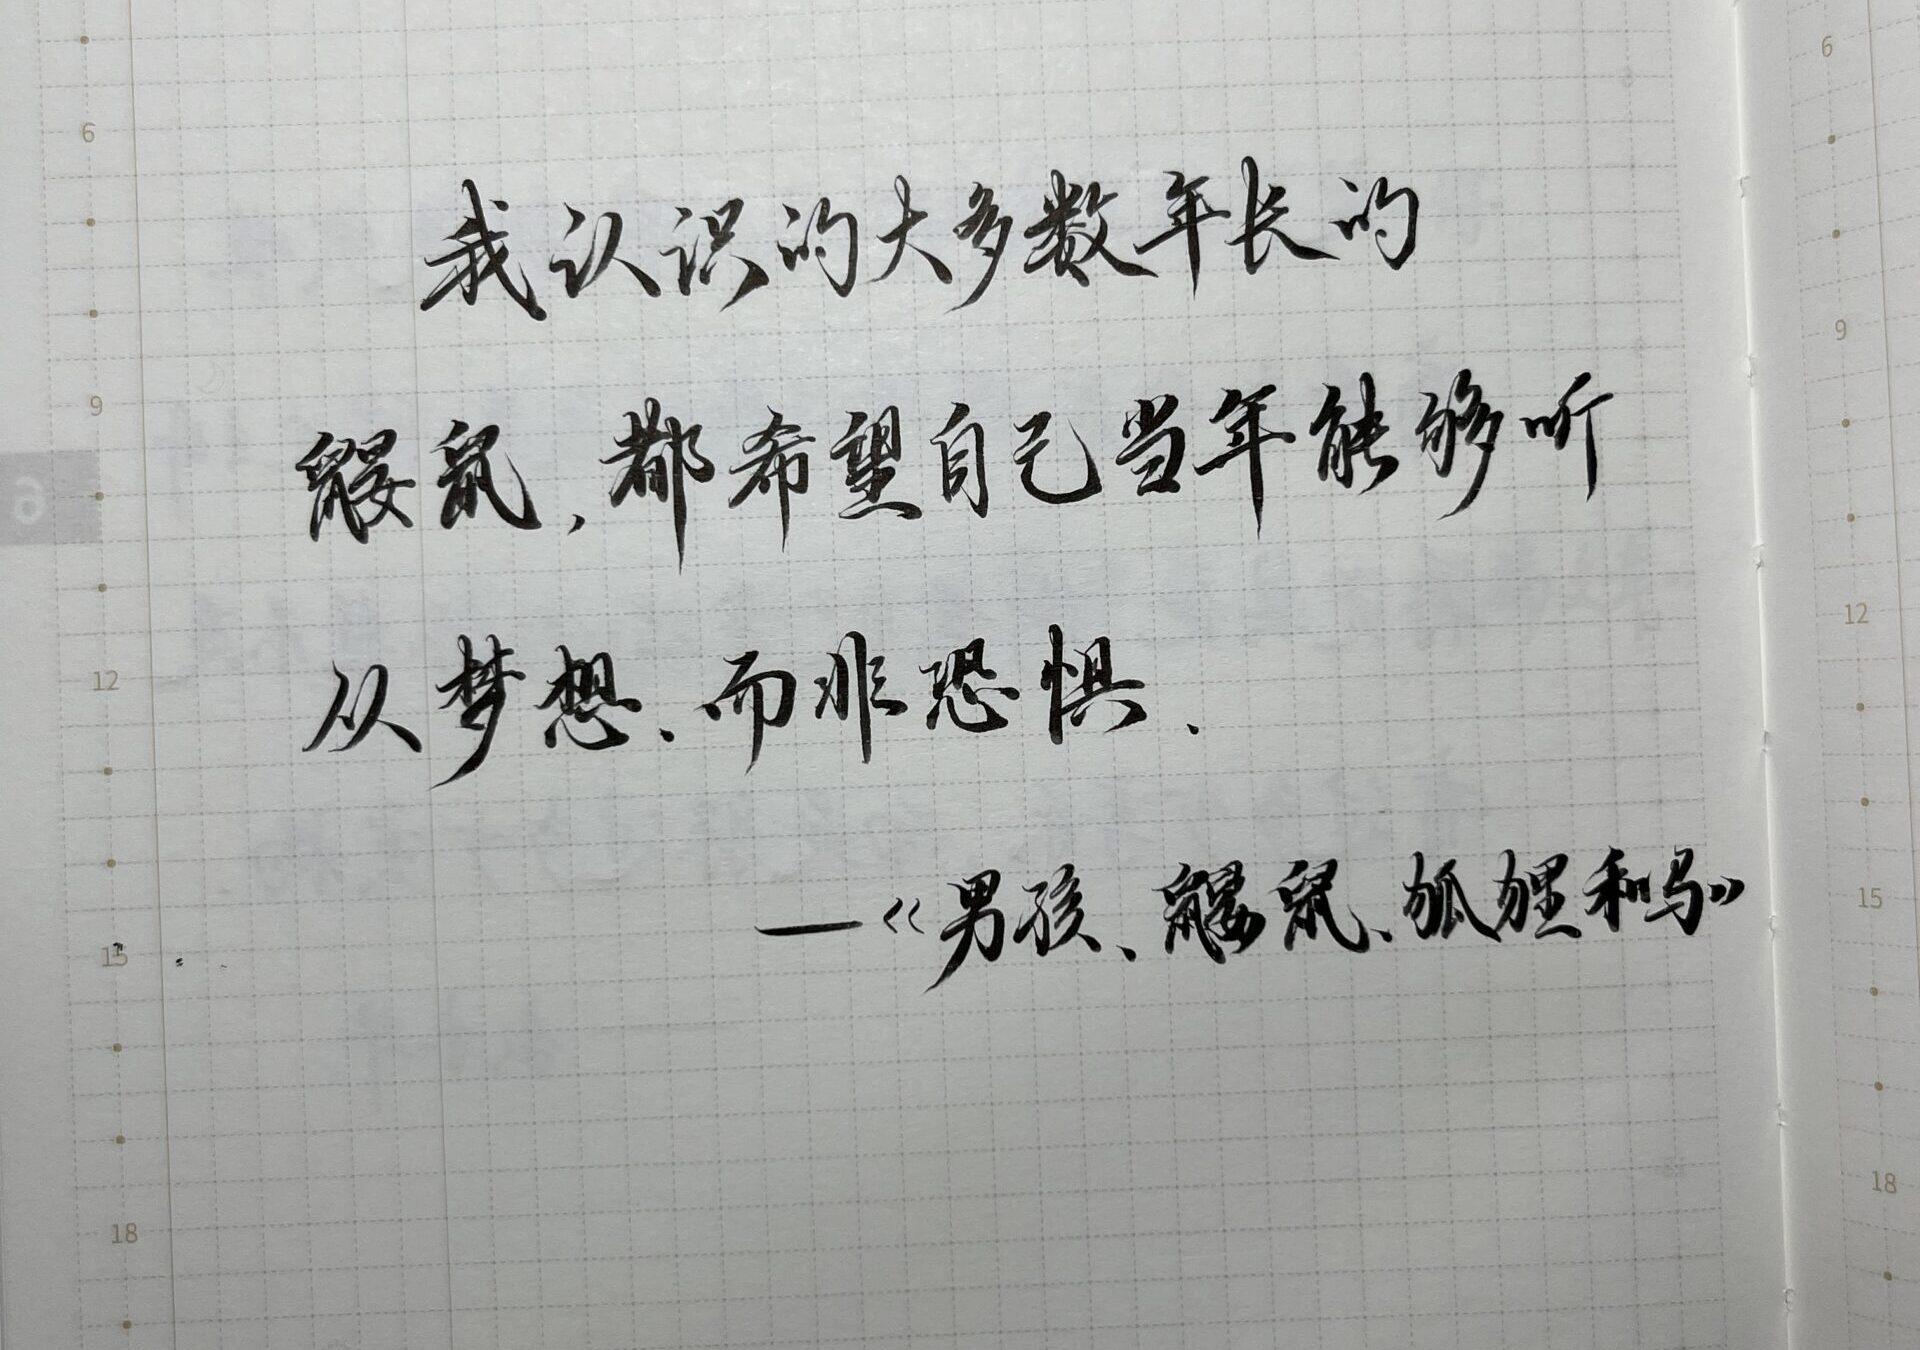 我认识的大多数年长的
鼹鼠，都希望自己当年能够听
从梦想、而非恐惧、
—《男孩、鼹鼠、狐狸和马》
6
9
12
15
18
6
6
9
12
15
18